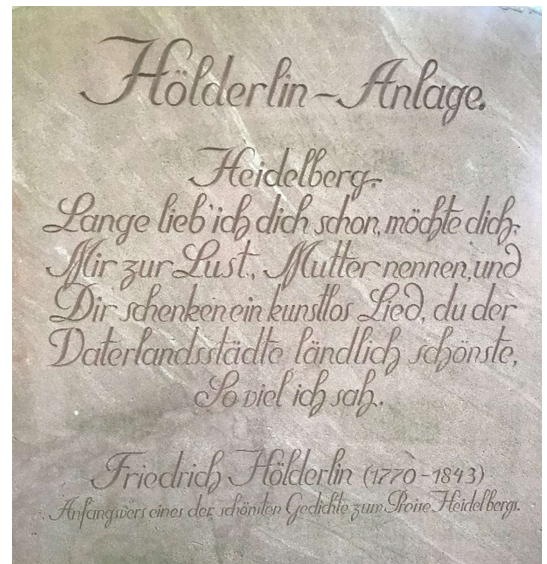 Hölderlin-Anlage.
Heidelberg.
Lange lieb' ich dich schon, möchte dich,
Mir zur Lust, Mutter nennen, und
Dir schenken ein kunstlos Lied, du der
Vaterlandsstädte ländlich schönste,
So viel ich sah.
Friedrich Hölderlin (1770-1843)
Anfangsvers eines der schönsten Gedichte zum Preise Heidelbergs.